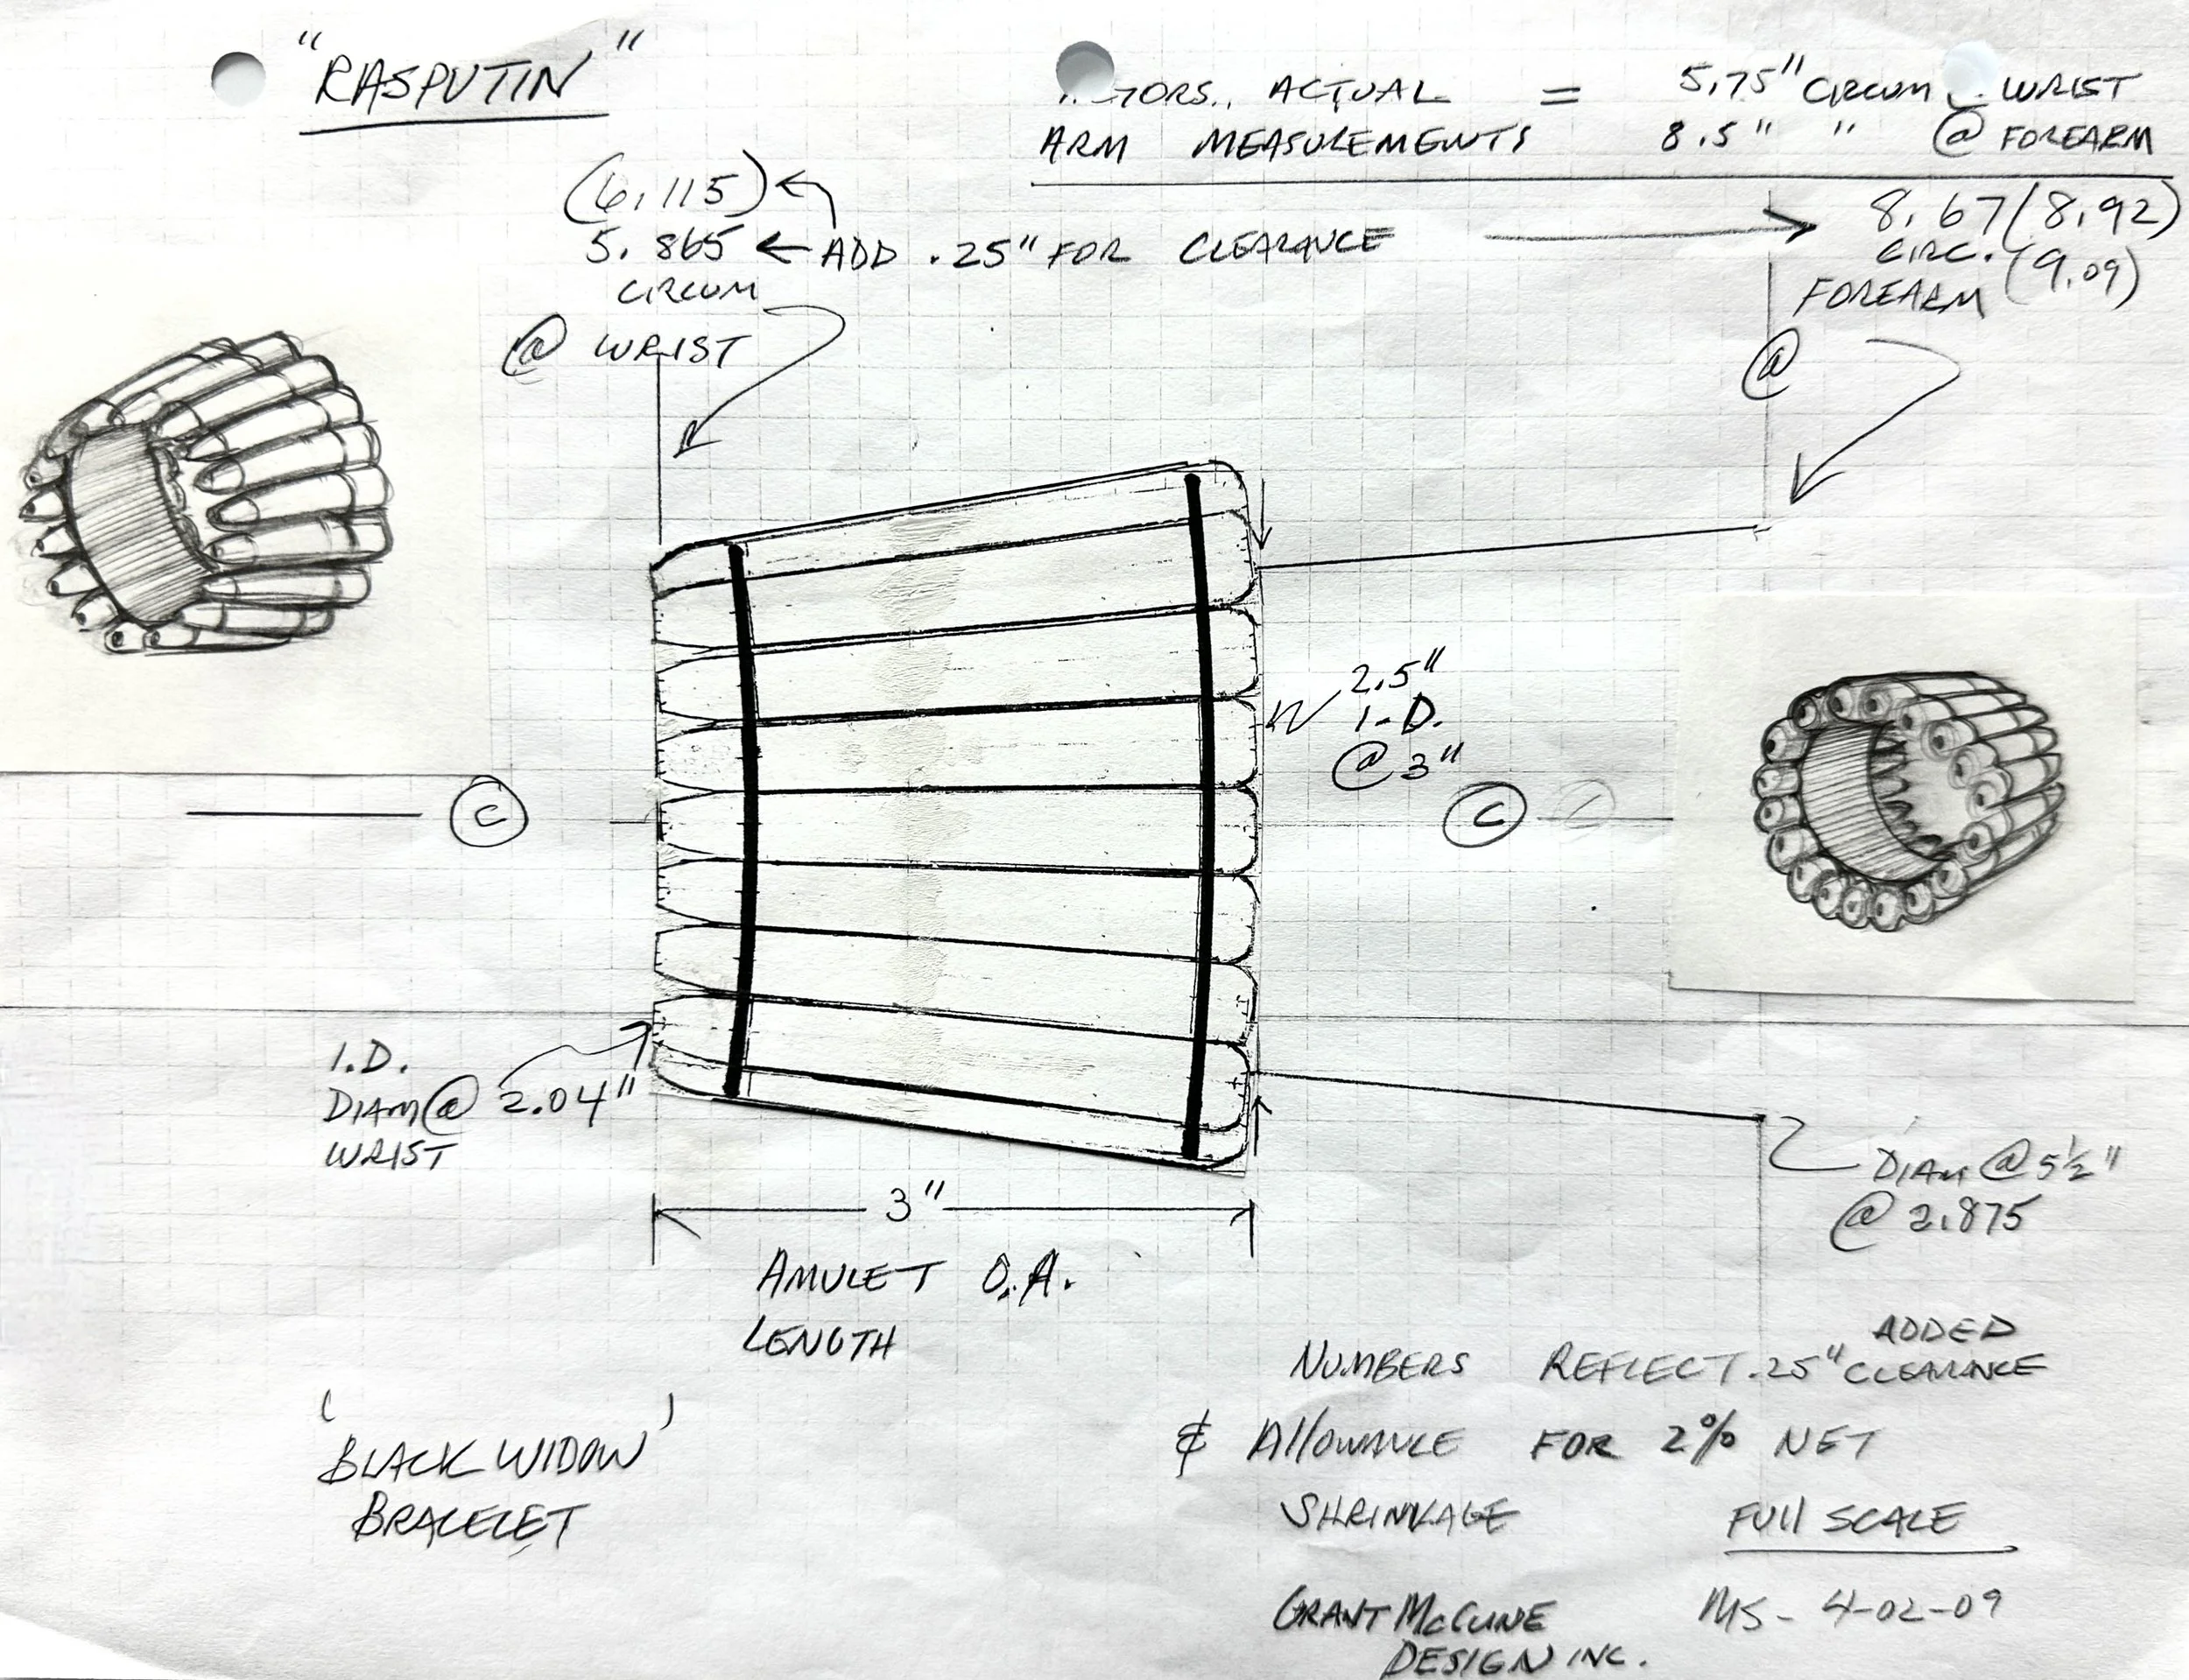 "RASPUTIN"
ACTUAL = 5.75" CIRCUM @ WRIST
ARM MEASUREMENTS 8.5" " @ FOREARM
(6.115)
5.865 ← ADD .25" FOR CLEARANCE → 8.67 (8.92)
CIRCUM
@ WRIST
CIRC. (9.09)
FOREARM
@
2.5"
I.D.
@ 3"
C
C
I.D.
DIAM @ 2.04"
WRIST
3"
AMULET O.A.
LENGTH
DIAM @ 5½"
@ 2.875
ADDED
NUMBERS REFLECT .25" CLEARANCE
& ALLOWANCE FOR 2% NET
SHRINKAGE
FULL SCALE
'BLACK WIDOW'
BRACELET
GRANT McCUNE
DESIGN INC.
MS - 4-02-09